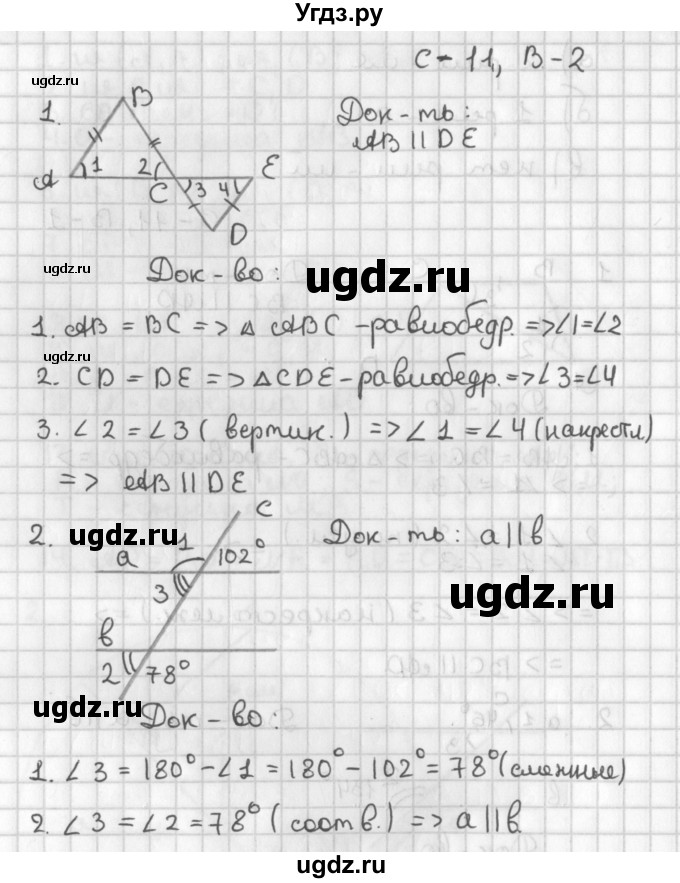 Угдз.ру
С-11, В-2
ugdz.ru
1.
B
Док-ть:
AB || DE
A 1 2 C 3 4 E
D
ugdz.ru
Док-во:
ugdz.ru
1. AB = BC => △ ABC -равнобедр. =>∠1=∠2
ugdz.ru
2. CD = DE => △CDE-равнобедр.=>∠3=∠4
3. ∠2 = ∠3 (вертик.) => ∠1 = ∠4 (накрестл)
=> AB || DE
2.
ugdz.ru
C
Док-ть: a||b
a 1 102°
3
ugdz.ru
в
2 78°
ugdz.ru
Док-во:
1. ∠3 = 180°-∠1 = 180°-102°= 78° (смежные)
2. ∠3 = ∠2 = 78° (соотв.) => a||в
ugdz.ru